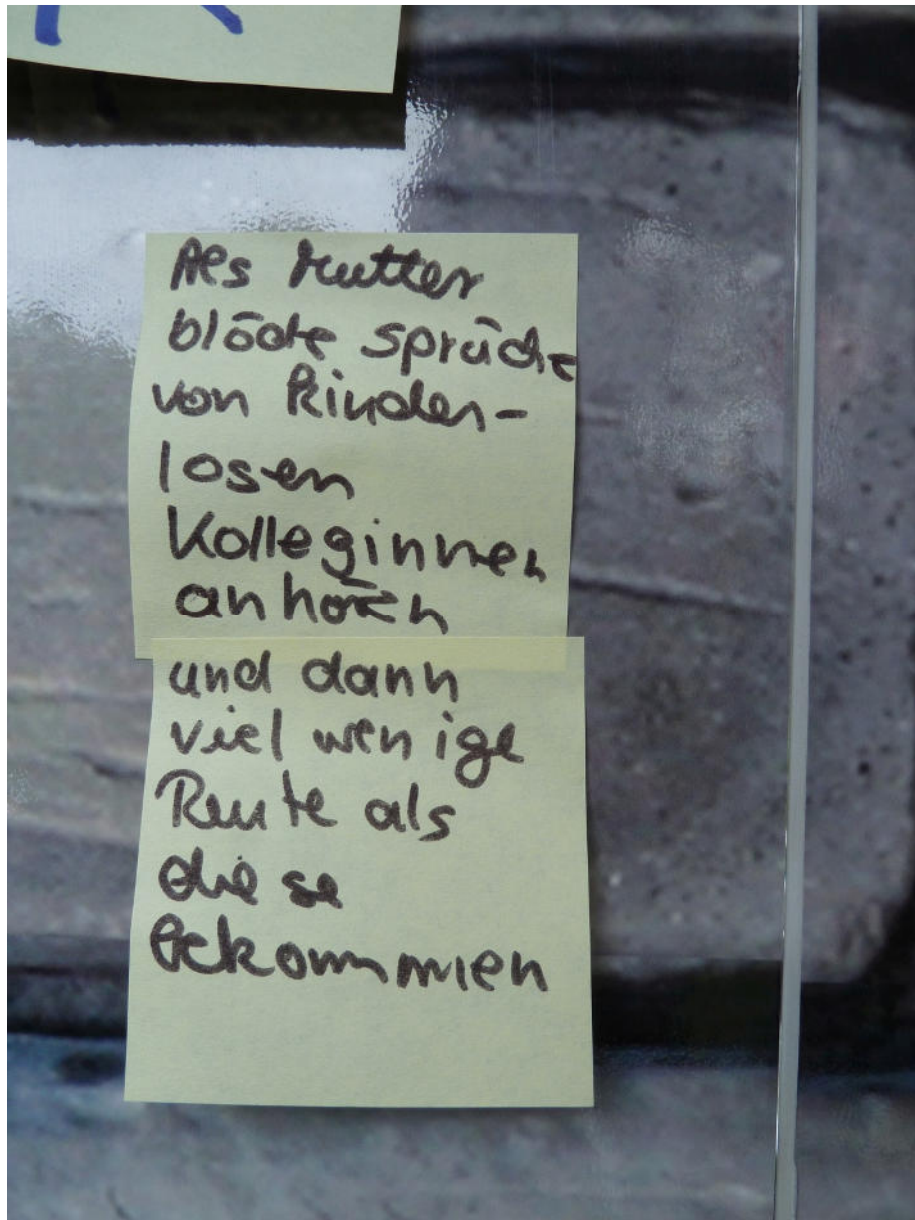 Als Mutter
blöde Sprüche
von Kinder-
losen
Kolleginnen
anhören
und dann
viel wenige
Rente als
diese
bekommen